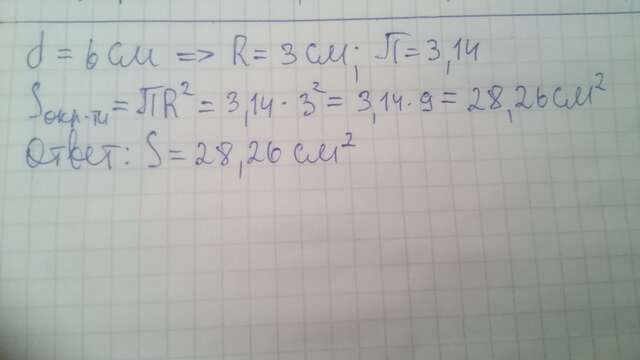 d = 6 см => R = 3 см; П = 3,14
Sокр-ти = ПR² = 3,14 · 3² = 3,14 · 9 = 28,26 см²
Ответ: S = 28,26 см²